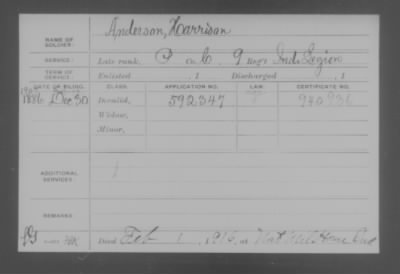 NAME OF SOLDIER: Anderson, Harrison
SERVICE: Late rank, P Co. C, 9 Reg't Ind. Legion
TERM OF SERVICE: Enlisted , 1 Discharged , 1
DATE OF FILING. CLASS. APPLICATION NO. LAW. CERTIFICATE NO.
1886 Dec 30 Invalid, 592347 940936
Widow,
Minor,
ADDITIONAL SERVICES:
REMARKS:
Died Feb 1, 1916, at Nat Mil Home Ind